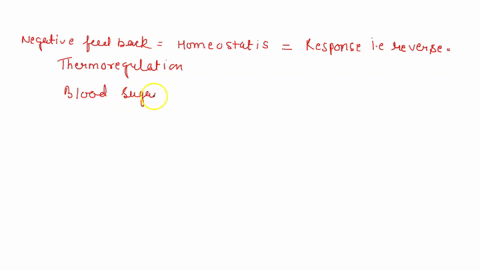 Negative feed back = Homeostatis = Response i.e reverse.
Thermoregulation
Blood suga